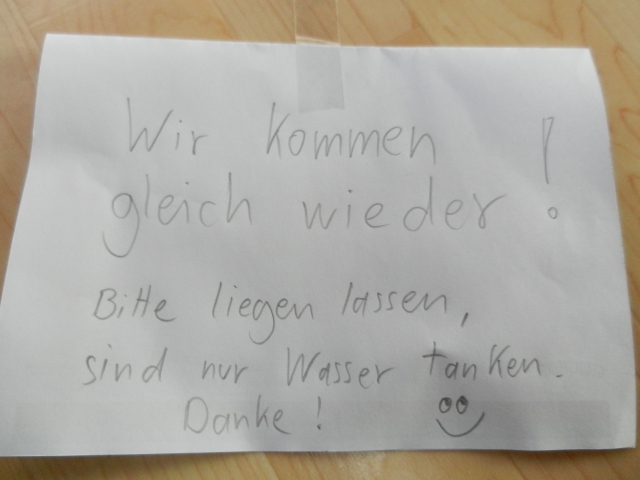 Wir kommen
gleich wieder!
Bitte liegen lassen,
sind nur Wasser tanken.
Danke!